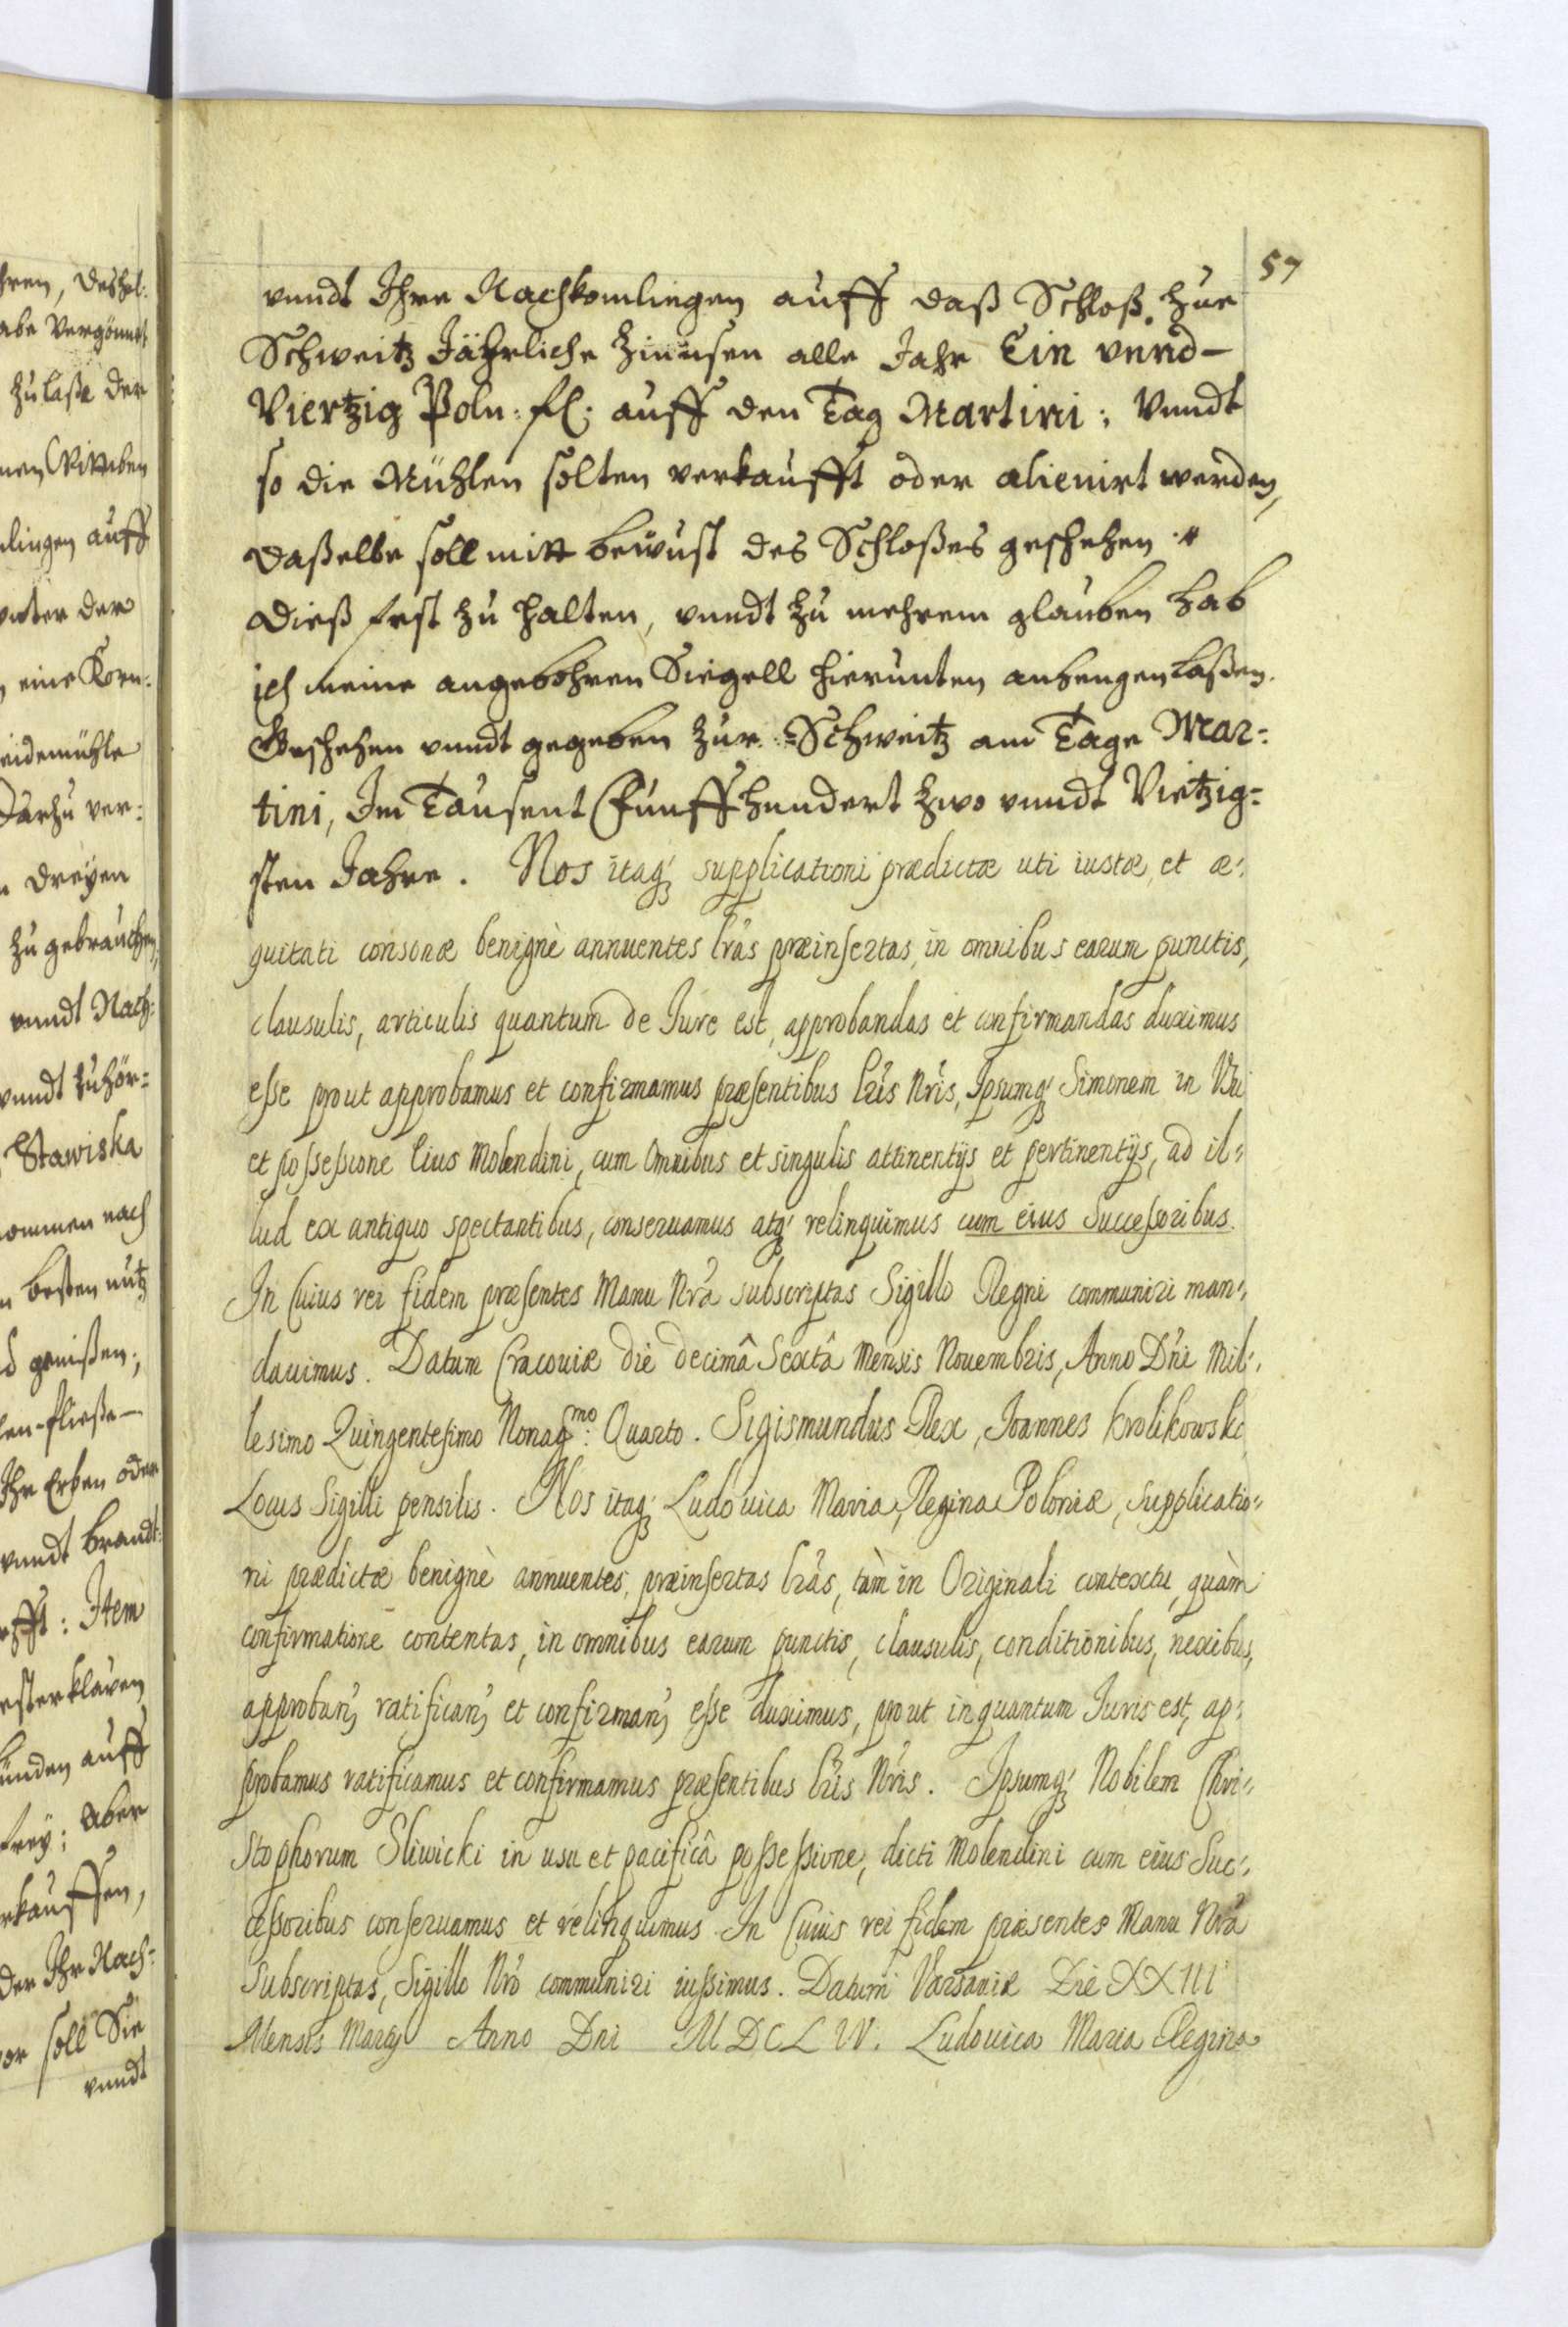 57
vnndt Ihre Nachkomlingen auff daß Schloß zue
Schweitz Jährliche Zinnsen alle Jahr Ein vnnd-
Viertzig Poln: fl: auff den Tag Martini; Vnndt
so die Mühlen solten verkaufft oder alienirt werden,
daßelbe soll mitt bewust des Schloßes geschehen.
Dieß fest zu halten, vnndt zu mehrem glauben hab
ich meine angebohren Siegell hierunten anhengen laßen.
Geschehen vnndt gegeben zur Schweitz am Tage Mar:
tini, Im Tausent Fünffhundert zwo vnndt Vietzig=
sten Jahre. Nos itaq; supplicationi prædictæ uti iustæ, et æ:
quitati consonæ benignè annuentes lrãs præinsertas, in omnibus earum punctis,
clausulis, articulis quantum de Jure est, approbandas et confirmandas duximus
esse prout approbamus et confirmamus præsentibus lrĩs Nrĩs, Ipsumq; Simonem in Usu
et possessione Eius Molendini, cum Omnibus et singulis attinentijs et pertinentijs, ad il=
lud ex antiquo spectantibus, conseruamus atq; relinquimus cum eius Successoribus.
In Cuius rei fidem præsentes Manu Nrã subscriptas Sigillo Regni communiri man=
dauimus. Datum Cracoviæ die decimâ Sextâ Mensis Nouembris, Anno Dñi Mil=
lesimo Quingentesimo Nonagmo: Quarto. Sigismundus Rex, Joannes Krolikowski
Locus Sigilli pensilis. Nos itaq; Ludovica Maria, Regina Poloniæ, supplicatio=
ni prædictæ benignè annuentes, præinsertas lrãs, tàm in Originali contextu, quàm
confirmatione contentas, in omnibus earum punctis, clausulis, conditionibus, nexibus,
approban; ratifican; et confirman; esse duximus, prout in quantum Iuris est, ap=
probamus ratificamus et confirmamus præsentibus lrĩs Nrĩs. Ipsumq; Nobilem Chri=
stophorum Sliwicki in usu et pacificâ possessione, dicti Molendini cum eius Suc=
cessoribus conseruamus et relinquimus. In Cuius rei fidem præsentes Manu Nrã
subscriptas, Sigillo Nrõ communiri iussimus. Datum Varsaviæ Die XXIII
Mensis Martij Anno Dni MDCLIV. Ludouica Maria Regina
hren, deshal:
abe Vergönnet
zulaße der
lingen auff
vnter der
eine Korn:
eidemühle
Darzu ver:
dreyen
zu gebrauchen,
vnndt Nach:
vnndt zuhör=
Stawiska
kommen nach
besten nutz
genißen;
fließe-
Ihr Erben oder
vnndt brandt:
Item
auff
frey; Aber
rkauffen,
der Ihr Nach=
soll Sie
vnndt